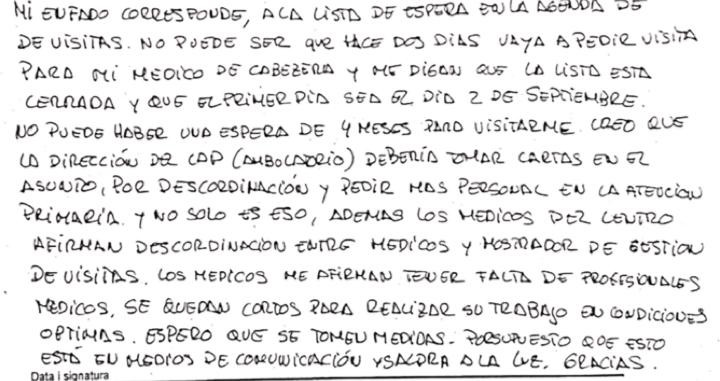 MI ENFADO CORRESPONDE, A LA LISTA DE ESPERA EN LA AGENDA DE
DE VISITAS. NO PUEDE SER QUE HACE DOS DIAS VAYA A PEDIR VISITA
PARA MI MEDICO DE CABEZERA Y ME DIGAN QUE LA LISTA ESTA
CERRADA Y QUE EL PRIMER DIA SEA EL DIA 2 DE SEPTIEMBRE.
NO PUEDE HABER UNA ESPERA DE 4 MESES PARA VISITARME. CREO QUE
LA DIRECCIÓN DEL CAP (AMBOLATORIO) DEBERÍA TOMAR CARTAS EN EL
ASUNTO, POR DESCORDINACIÓN Y PEDIR MAS PERSONAL EN LA ATENCION
PRIMARÍA. Y NO SOLO ES ESO, ADEMAS LOS MEDICOS DEL CENTRO
AFIRMAN DESCORDINACION ENTRE MEDICOS Y MOSTRADOR DE GESTION
DE VISITAS. LOS MEDICOS ME AFIRMAN TENER FALTA DE PROFESIONALES
MEDICOS, SE QUEDAN CORTOS PARA REALIZAR SU TRABAJO EN CONDICIONES
OPTIMAS. ESPERO QUE SE TOMEN MEDIDAS. PORSUPUESTO QUE ESTO
ESTÁ EN MEDIOS DE COMUNICACIÓN Y SALDRA A LA LUZ. GRACIAS.
Data i signatura